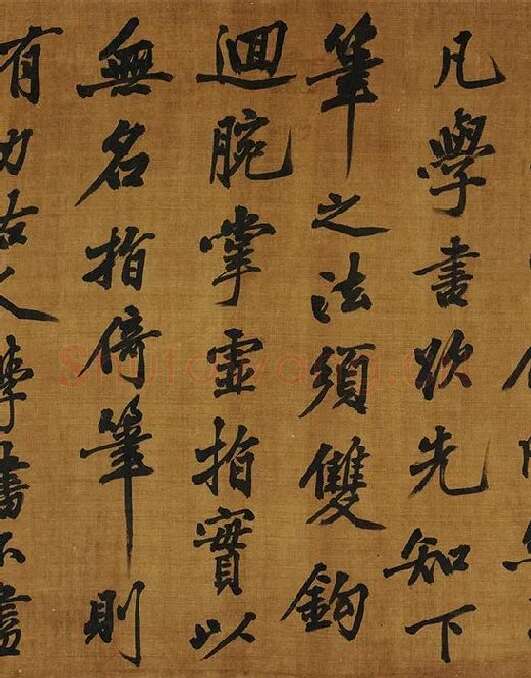 凡學書欲先知下
筆之法須雙鉤
迴腕掌虛指實以
無名指倚筆則
有力古人學書不盡